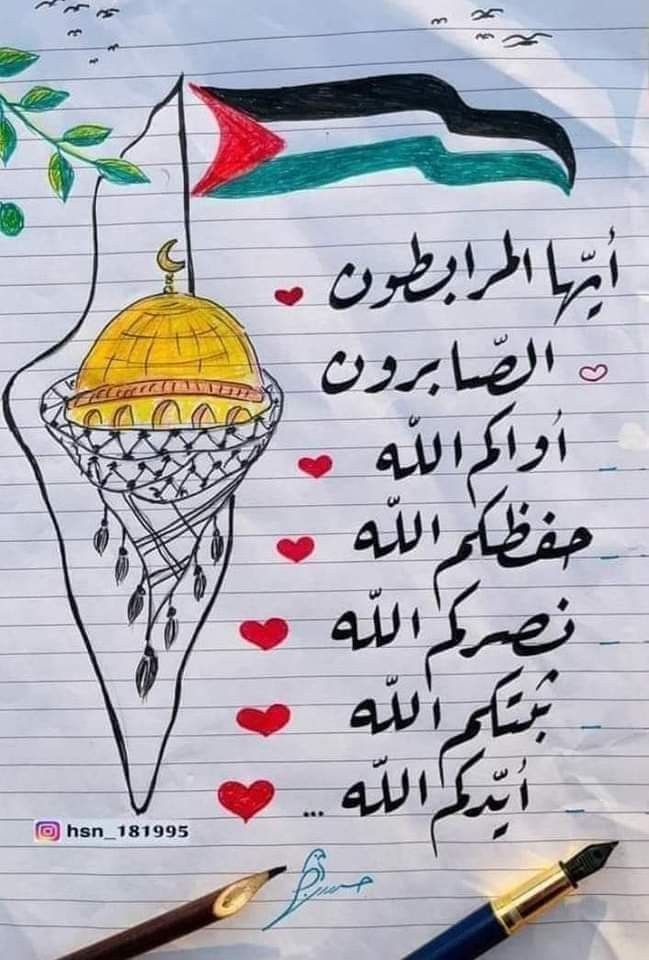 أيّها المرابطون
الصّابرون
أواكم اللّه
حفظكم اللّه
نصركم اللّه
ثبّتكم اللّه
أيّدكم اللّه ...
hsn_181995